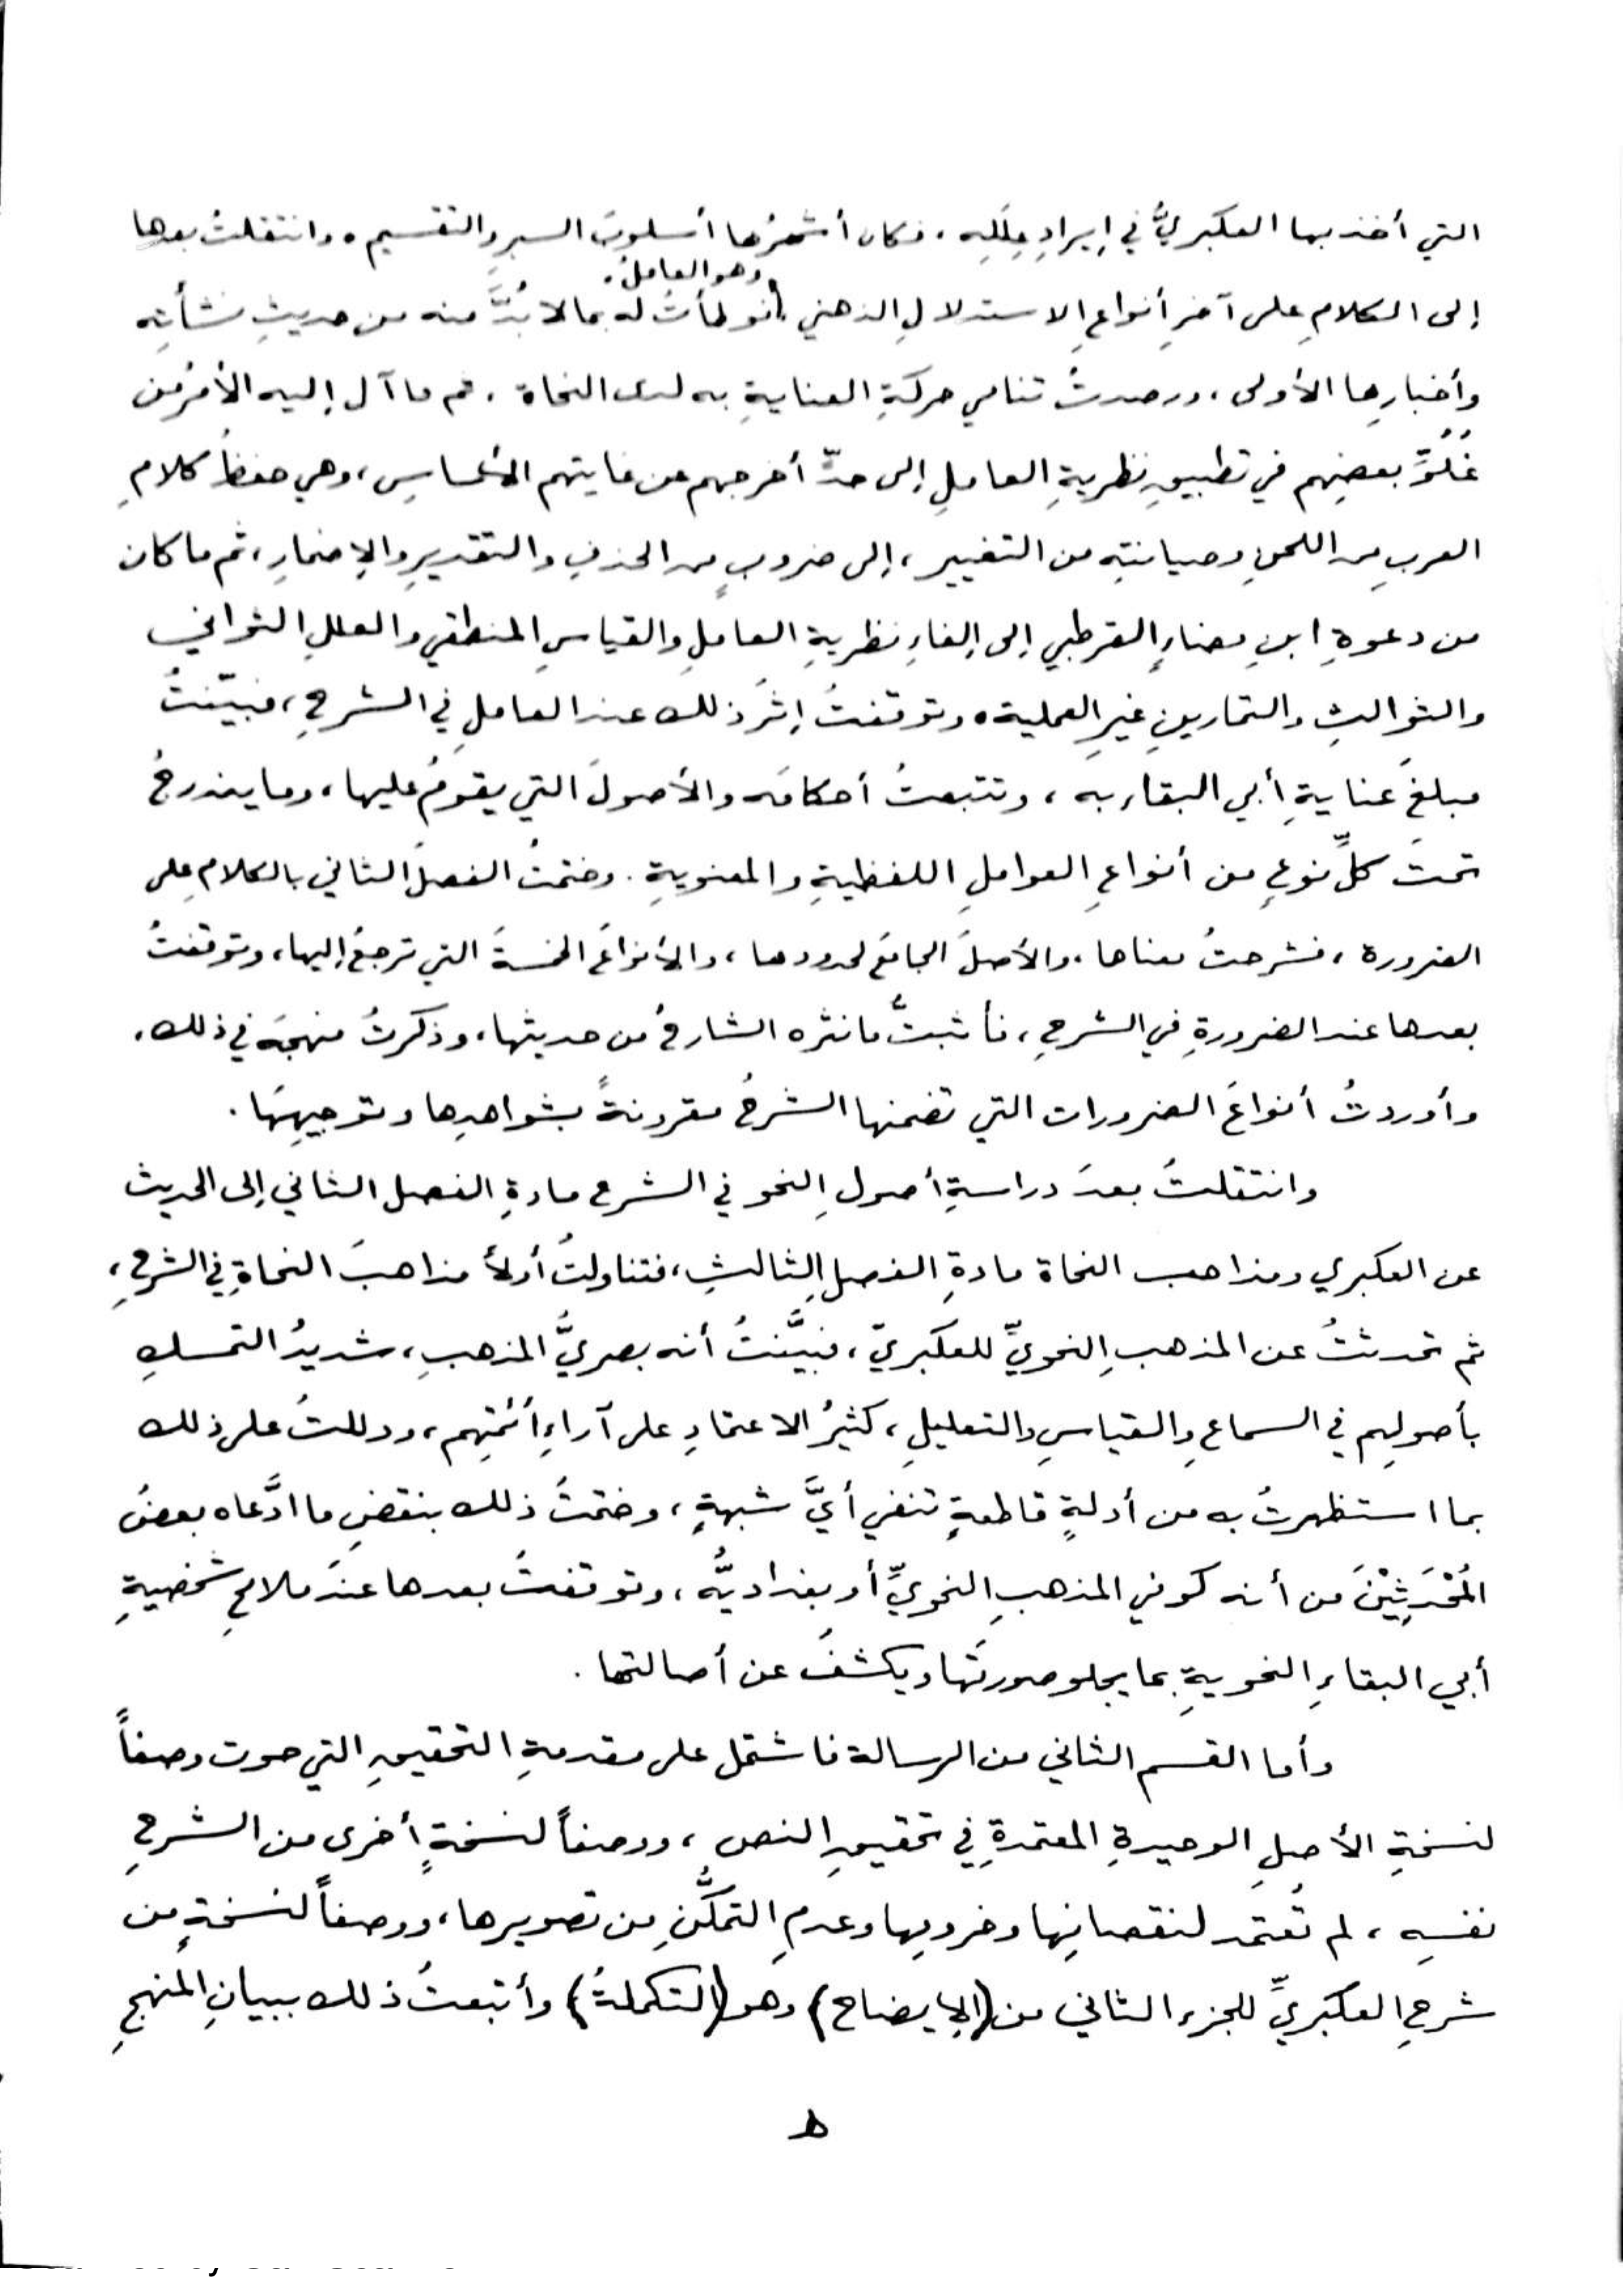 التي أخذ بها العكبريُّ في إيرادِ عِلَلِه، فكان أشهرُها أسلوبَ السبرِ والتقسيم. وانتقلتُ بعدها
إلى الكلامِ على آخرِ أنواعِ الاستدلالِ الذهني وهو العاملُ، فوطأتُ له بما لا بُدَّ منه من حديثِ نشأتِه
وأخبارِها الأولى، ورصدتُ تنامي حركةِ العنايةِ به لدى النحاة، ثم ما آل إليه الأمرُ من
غُلُوِّ بعضِهم في تطبيقِ نظريةِ العاملِ إلى حدّ أخرجهم عن غايتهم الأساسِ، وهي حفظُ كلامِ
العربِ من اللحنِ وصيانتِه من التغيير، إلى ضروبٍ من الحذفِ والتقديرِ والإضمارِ، ثم ما كان
من دعوةِ ابنِ مضاءٍ القرطبي إلى إلغاءِ نظريةِ العاملِ والقياسِ المنطقي والعللِ الثواني
والثوالثِ والتمارينِ غيرِ العملية. وتوقفتُ إثرَ ذلك عند العاملِ في الشرحِ، فبيّنتُ
مبلغَ عنايةِ أبي البقاء به، وتتبعتُ أحكامَه والأصولَ التي يقومُ عليها، وما يندرجُ
تحتَ كلِّ نوعٍ من أنواعِ العواملِ اللفظيةِ والمعنويةِ. وختمتُ الفصلَ الثاني بالكلامِ على
الضرورة، فشرحتُ معناها، والأصلَ الجامعَ لحدودها، والأنواعَ الخمسةَ التي ترجعُ إليها، وتوقفتُ
بعدها عند الضرورةِ في الشرحِ، فأثبتُّ ما نثره الشارحُ من حديثها، وذكرتُ منهجَه في ذلك،
وأوردتُ أنواعَ الضرورات التي تضمنها الشرحُ مقرونةً بشواهدِها وتوجيهِها.
وانتقلتُ بعدَ دراسةِ أصولِ النحو في الشرح مادةِ الفصل الثاني إلى الحديث
عن العكبري ومذاهب النحاة مادةِ الفصلِ الثالثِ، فتناولتُ أولاً مذاهبَ النحاةِ في الشرحِ،
ثم تحدثتُ عن المذهبِ النحويِّ للعكبريّ، فبيَّنتُ أنه بصريُّ المذهبِ، شديدُ التمسكِ
بأصولِهم في السماعِ والقياسِ والتعليلِ، كثيرُ الاعتمادِ على آراءِ أئمتِهم، ودللتُ على ذلك
بما استظهرتُ به من أدلةٍ قاطعةٍ تنفي أيَّ شبهةٍ، وختمتُ ذلك بنقضِ ما ادَّعاه بعضُ
المُحْدَثِيْنَ من أنه كوفي المذهبِ النحويِّ أو بغداديُّه، وتوقفتُ بعدها عندَ ملامحِ شخصيةِ
أبي البقاءِ النحويةِ بما يجلو صورتَها ويكشفُ عن أصالتها.
وأما القسم الثاني من الرسالة فاشتمل على مقدمةِ التحقيقِ التي حوت وصفاً
لنسخةِ الأصلِ الوحيدةِ المعتمدةِ في تحقيقِ النص، ووصفاً لنسخةٍ أخرى من الشرحِ
نفسِه، لم تُعتمَد لنقصانِها وخرومِها وعدمِ التمكُّنِ من تصويرها، ووصفاً لنسخةٍ من
شرحِ العكبريِّ للجزء الثاني من (الإيضاح) وهو (التكملةُ) وأتبعتُ ذلك ببيانِ المنهجِ
ط